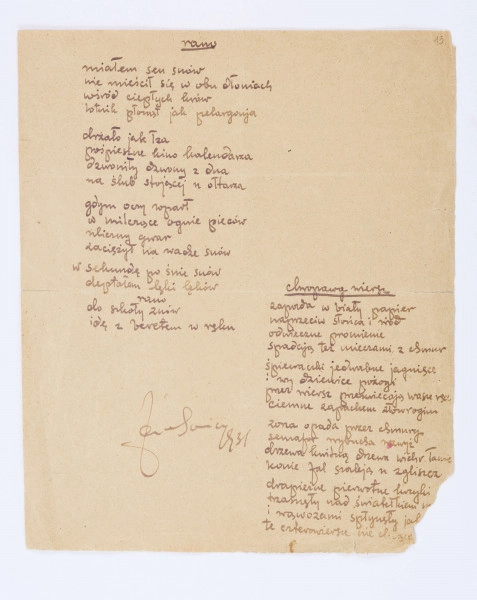 13
rano
miałem sen snów
nie mieścił się w obu dłoniach
wśród ciepłych krów
lotnik płomał jak pelargonja
drżało jak łza
pośpieszne kino kalendarza
dzwoniły dzwony z dna
na ślub stojącej u ołtarza
gdym oczy wparł
w milczące ognie pieców
uliczny gwar
zaciężył na wadze snów
w sekundę po śnie snów
deptałem łąki lęków
rano
do szkoły znów
idę z beretem w ręku
chropawy wiersz
zapada w biały papier
naprzeciw słońca i wód
odwieczne promienie
spadają też mieczami z chmur
śpiewaczki jedwabne jagnięce
i wy dziewice pożogi
przez wiersz przeświecają wasze
ciemne zapachem złowrogim
zona opada przez chmury
semafor wybucha
drzewa kwitną drzewa wichr łamie
konie fal szaleją u zgliszcz
drapieżne pierwotne
trzasnęły nad światełkiem
i wąwozami spłynęły jak
te czterowiersze nie
1931